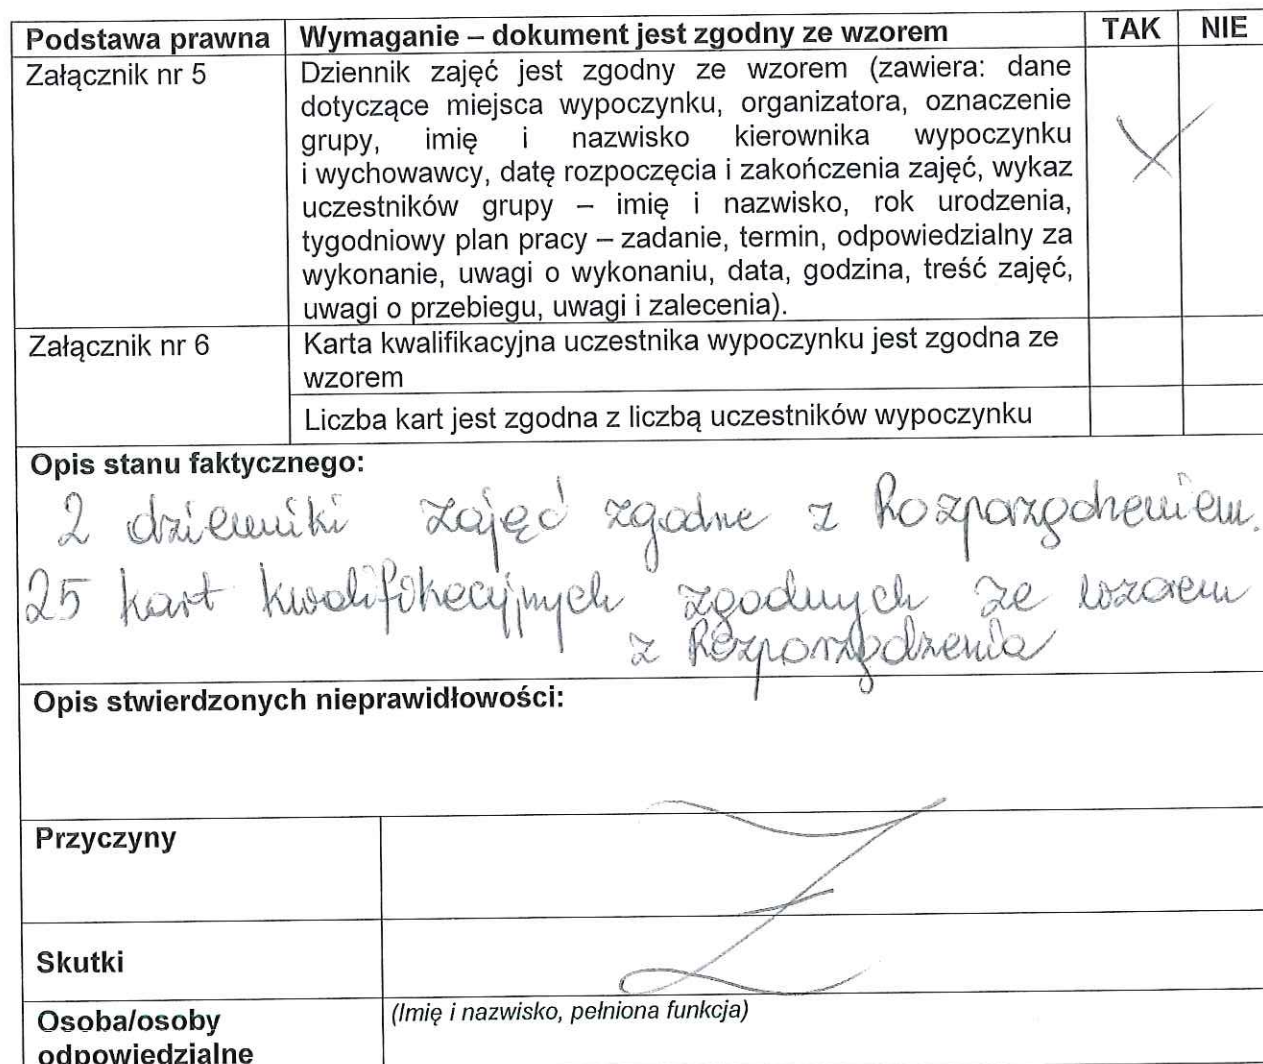 Podstawa prawna Wymaganie – dokument jest zgodny ze wzorem TAK NIE
Załącznik nr 5 Dziennik zajęć jest zgodny ze wzorem (zawiera: dane
dotyczące miejsca wypoczynku, organizatora, oznaczenie
grupy, imię i nazwisko kierownika wypoczynku
i wychowawcy, datę rozpoczęcia i zakończenia zajęć, wykaz
uczestników grupy – imię i nazwisko, rok urodzenia,
tygodniowy plan pracy – zadanie, termin, odpowiedzialny za
wykonanie, uwagi o wykonaniu, data, godzina, treść zajęć,
uwagi o przebiegu, uwagi i zalecenia).
Załącznik nr 6 Karta kwalifikacyjna uczestnika wypoczynku jest zgodna ze
wzorem
Liczba kart jest zgodna z liczbą uczestników wypoczynku
Opis stanu faktycznego:
2 dzienniki zajęć zgodne z Rozporządzeniem.
25 kart kwalifikacyjnych zgodnych ze wzorem
z Rozporządzenia
Opis stwierdzonych nieprawidłowości:
Przyczyny
Skutki
Osoba/osoby (Imię i nazwisko, pełniona funkcja)
odpowiedzialne